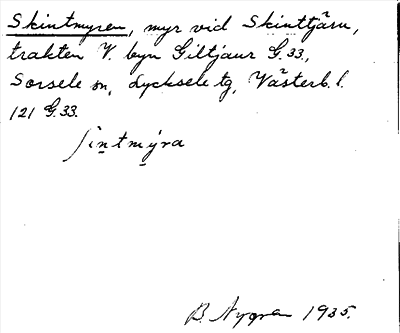 Skintmyren, myr vid Skinttjärn,
trakten V. byn Giltjaur G.33,
Sorsele sn, Lycksele tg, Västerb. l.
121 G.33.
ʃin̲tmý̲ra
B. Nygren 1935.